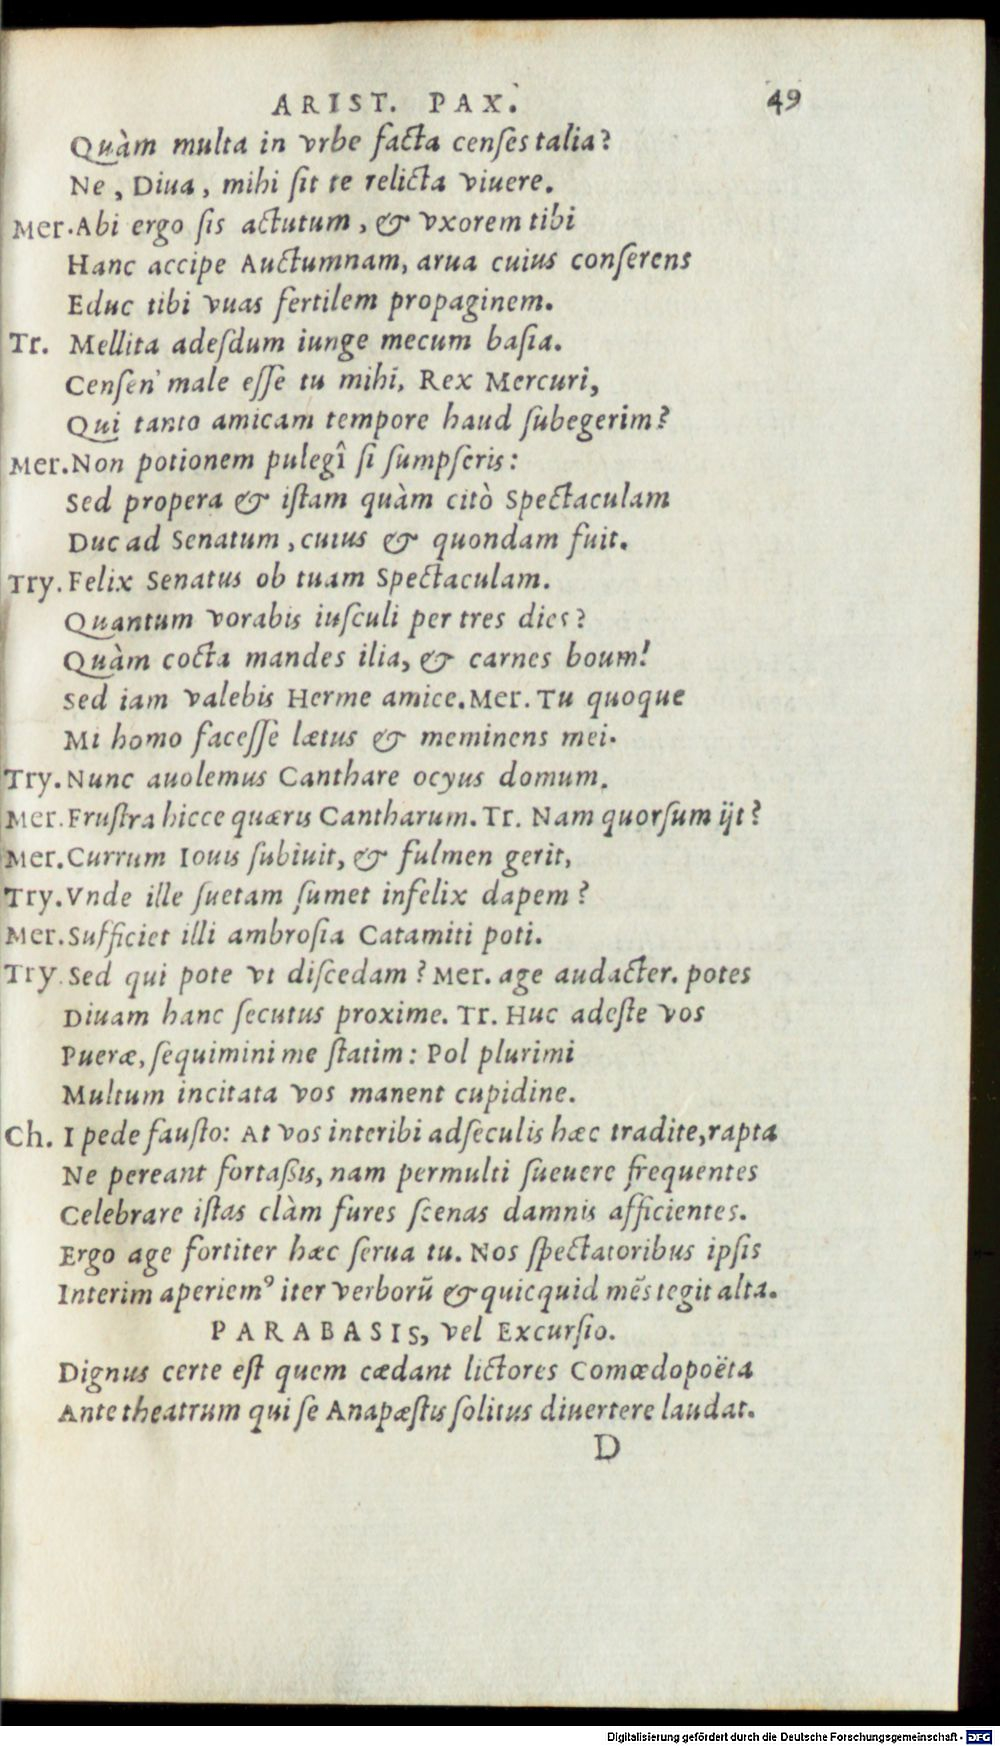 ARIST. PAX. 49
Quàm multa in vrbe facta censes talia?
Ne, Diua, mihi sit te relicta viuere.
Mer. Abi ergo sis actutum, & vxorem tibi
Hanc accipe Auctumnam, arua cuius conserens
Educ tibi vuas fertilem propaginem.
Tr. Mellita adesdum iunge mecum basia.
Censen' male esse tu mihi, Rex Mercuri,
Qui tanto amicam tempore haud subegerim?
Mer. Non potionem pulegî si sumpseris:
Sed propera & istam quàm citò Spectaculam
Duc ad Senatum, cuius & quondam fuit.
Try. Felix Senatus ob tuam Spectaculam.
Quantum vorabis iusculi per tres dies?
Quàm cocta mandes ilia, & carnes boum!
Sed iam valebis Herme amice. Mer. Tu quoque
Mi homo facesse lætus & meminens mei.
Try. Nunc auolemus Canthare ocyus domum.
Mer. Frustra hicce quæris Cantharum. Tr. Nam quorsum ijt?
Mer. Currum Iouis subiuit, & fulmen gerit,
Try. Vnde ille suetam sumet infelix dapem?
Mer. Sufficiet illi ambrosia Catamiti poti.
Try. Sed qui pote vt discedam? Mer. age audacter. potes
Diuam hanc secutus proxime. Tr. Huc adeste vos
Pueræ, sequimini me statim: Pol plurimi
Multum incitata vos manent cupidine.
Ch. I pede fausto: At vos interibi adseculis hæc tradite, rapta
Ne pereant fortaßis, nam permulti sueuere frequentes
Celebrare istas clàm fures scenas damnis afficientes.
Ergo age fortiter hæc serua tu. Nos spectatoribus ipsis
Interim aperiemꝰ iter verborũ & quicquid mẽs tegit alta.
PARABASIS, vel Excursio.
Dignus certe est quem cædant lictores Comœdopoëta
Ante theatrum qui se Anapæstis solitus diuertere laudat.
D
Digitalisierung gefördert durch die Deutsche Forschungsgemeinschaft - DFG